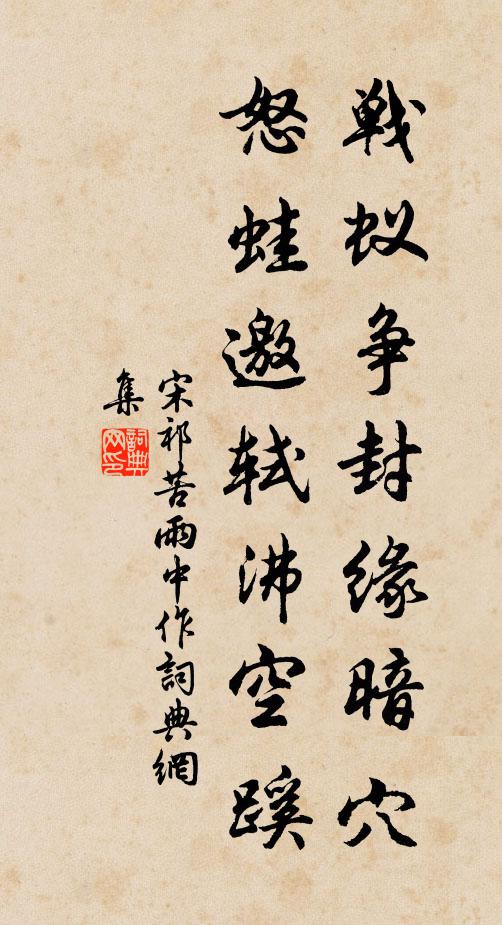 戦蚁争封缘暗穴
怒蛙邀轼沸空蹊
宋祁苦雨中作詞典網
集
詞典
网印